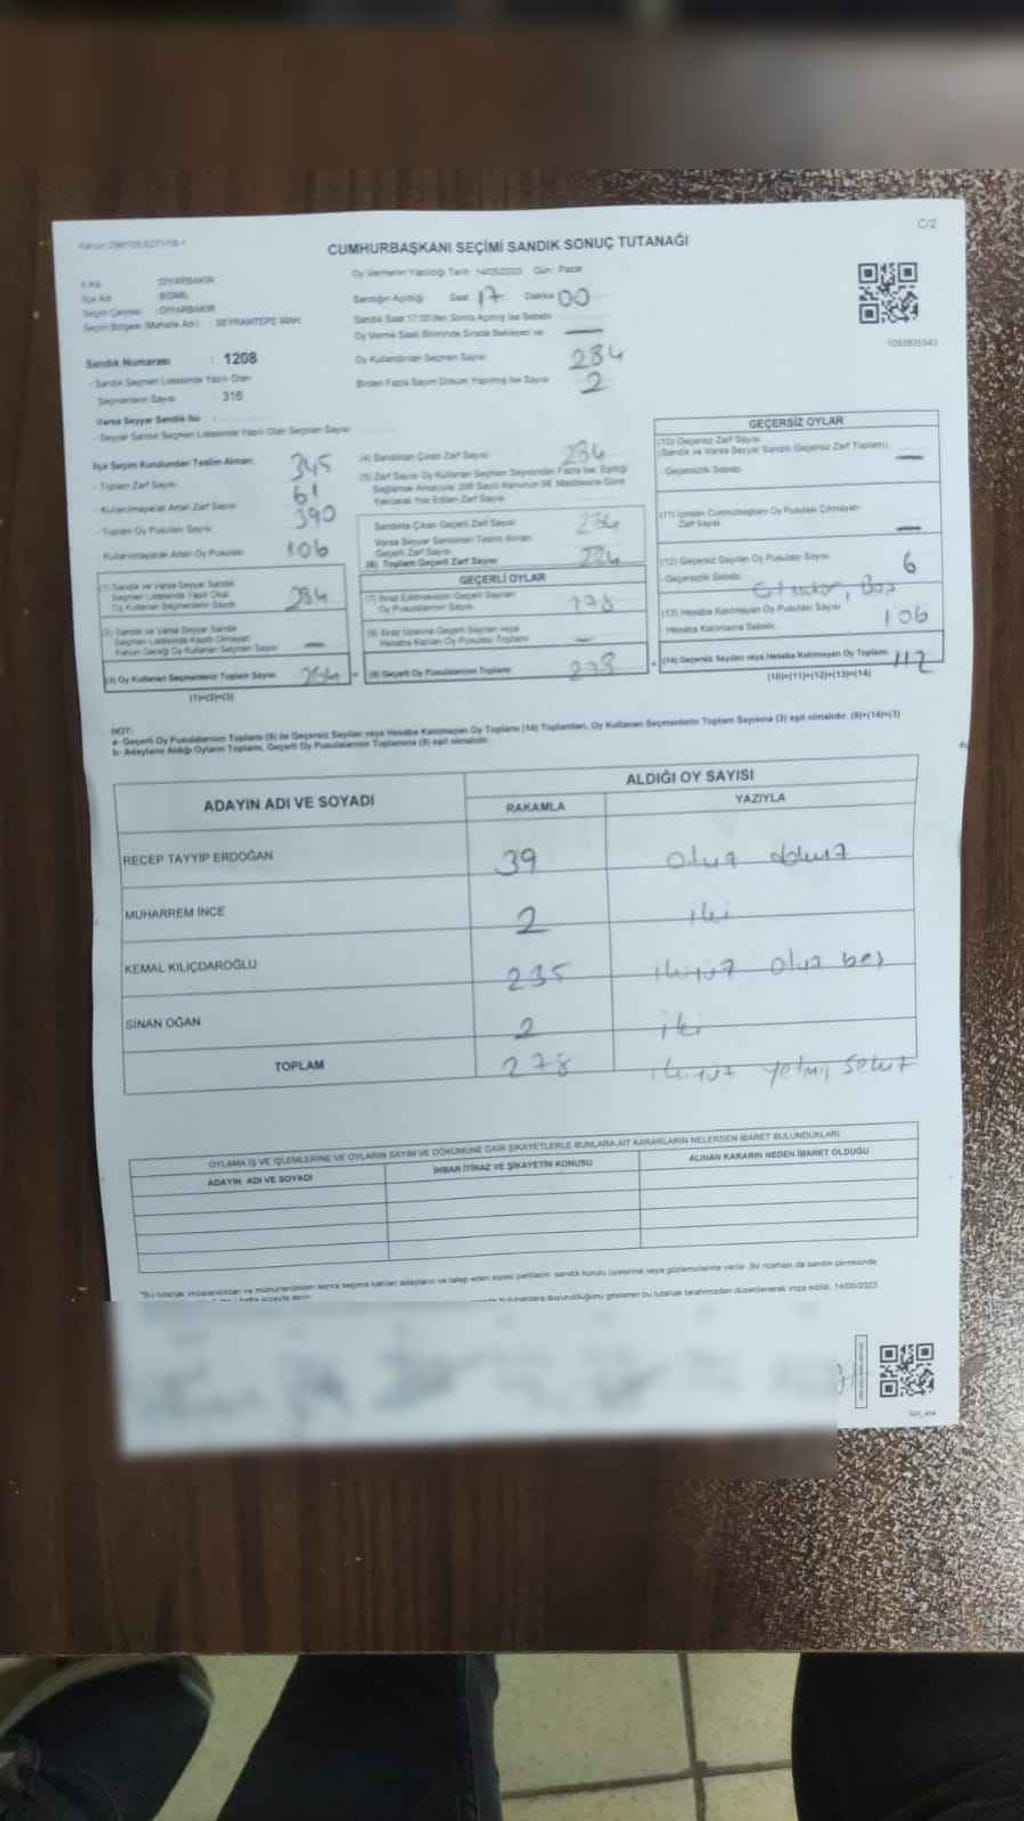 C/2
CUMHURBAŞKANI SEÇİMİ SANDIK SONUÇ TUTANAĞI
İl Adı : DİYARBAKIR
İlçe Adı : BİSMİL
Seçim Çevresi : DİYARBAKIR
Seçim Bölgesi (Mahalle Adı) : SEYRANTEPE MAH.
Sandık Numarası : 1208
- Sandık Seçmen Listesinde Yazılı Olan
Seçmenlerin Sayısı 316
Varsa Seyyar Sandık No :
- Seyyar Sandık Seçmen Listesinde Yazılı Olan Seçmen Sayısı
Oy Vermenin Yapıldığı Tarih 14/05/2023 Gün Pazar
Sandığın Açıldığı Saat 17 Dakika 00
Sandık Saat 17:00'den Sonra Açılmış İse Sebebi
Oy Verme Saati Bitiminde Sırada Bekleyen ve
Oy Kullandırılan Seçmen Sayısı 284
Birden Fazla Sayım Döküm Yapılmış İse Sayısı 2
1093835543
İlçe Seçim Kurulundan Teslim Alınan; 345
- Toplam Zarf Sayısı
- Kullanılmayarak Artan Zarf Sayısı 61
- Toplam Oy Pusulası Sayısı 390
- Kullanılmayarak Artan Oy Pusulası 106
(1) Sandık ve Varsa Seyyar Sandık
Seçmen Listesinde Yazılı Olup
Oy Kullanan Seçmenlerin Sayısı 284
(2) Sandık ve Varsa Seyyar Sandık
Seçmen Listesinde Kayıtlı Olmayan
Kanun Gereği Oy Kullanan Seçmen Sayısı —
(3) Oy Kullanan Seçmenlerin Toplam Sayısı 284
(1)+(2)=(3)
(4) Sandıktan Çıkan Zarf Sayısı 284
(5) Zarf Sayısı Oy Kullanan Seçmen Sayısından Fazla İse, Eşitliği
Sağlamak Amacıyla 298 Sayılı Kanunun 98. Maddesine Göre
Yakılarak Yok Edilen Zarf Sayısı
Sandıkta Çıkan Geçerli Zarf Sayısı 284
Varsa Seyyar Sandıktan Teslim Alınan
Geçerli Zarf Sayısı
(6) Toplam Geçerli Zarf Sayısı 284
GEÇERLİ OYLAR
(7) İtiraz Edilmeksizin Geçerli Sayılan
Oy Pusulalarının Sayısı 278
(8) İtiraz Üzerine Geçerli Sayılan veya
Hesaba Katılan Oy Pusulaları Toplamı —
(9) Geçerli Oy Pusulalarının Toplamı 278
GEÇERSİZ OYLAR
(10) Geçersiz Zarf Sayısı
(Sandık ve Varsa Seyyar Sandık Geçersiz Zarf Toplamı) —
- Geçersizlik Sebebi
(11) İçinden Cumhurbaşkanı Oy Pusulası Çıkmayan
Zarf Sayısı —
(12) Geçersiz Sayılan Oy Pusulası Sayısı 6
Geçersizlik Sebebi Boş
(13) Hesaba Katılmayan Oy Pusulası Sayısı 106
Hesaba Katılmama Sebebi
(14) Geçersiz Sayılan veya Hesaba Katılmayan Oy Toplamı 112
(10)+(11)+(12)+(13)=(14)
NOT:
a- Geçerli Oy Pusulalarının Toplamı (9) ile Geçersiz Sayılan veya Hesaba Katılmayan Oy Toplamı (14) Toplamları, Oy Kullanan Seçmenlerin Toplam Sayısına (3) eşit olmalıdır. (9)+(14)=(3)
b- Adayların Aldığı Oyların Toplamı, Geçerli Oy Pusulalarının Toplamına (9) eşit olmalıdır.
ADAYIN ADI VE SOYADI ALDIĞI OY SAYISI
RAKAMLA YAZIYLA
RECEP TAYYİP ERDOĞAN 39 otuz dokuz
MUHARREM İNCE 2 iki
KEMAL KILIÇDAROĞLU 235 ikiyüz otuz beş
SİNAN OĞAN 2 iki
TOPLAM 278 ikiyüz yetmiş sekiz
OYLAMA İŞ VE İŞLEMLERİNE VE OYLARIN SAYIM VE DÖKÜMÜNE DAİR ŞİKAYETLERLE BUNLARA AİT KARARLARIN NELERDEN İBARET BULUNDUKLARI
ADAYIN ADI VE SOYADI İHBAR İTİRAZ VE ŞİKAYETİN KONUSU ALINAN KARARIN NEDEN İBARET OLDUĞU
"Bu tutanak imzalandıktan ve mühürlendikten sonra seçime katılan adayların ve talep eden siyasi partilerin sandık kurulu üyelerine veya gözlemcilerine verilir. Bir nüshası da sandık çevresinde
bulunanlara duyurulduğunu gösteren bu tutanak tarafımızdan düzenlenerek imza edildi. 14/05/2023